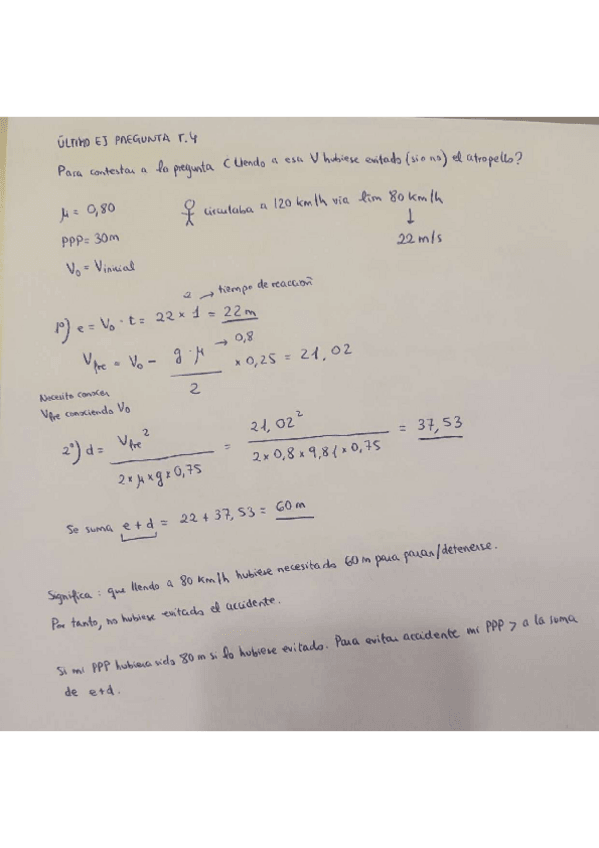 ÚLTIMO EJ PREGUNTA T.4
Para contestar a la pregunta ¿Llendo a esa V hubiese evitado (si o no) el atropello?
μ = 0,80
circulaba a 120 km/h via lim 80 km/h
↓
PPP = 30m
22 m/s
V₀ = Vinicial
2 → tiempo de reacción
1º) e = V₀ · t = 22 × 1 = 22 m
Vfre = V₀ − g · μ → 0,8 / 2 × 0,25 = 21,02
Necesito conocer
Vfre conociendo V₀
2º) d = Vfre² / 2 × μ × g × 0,75 = 21,02² / 2 × 0,8 × 9,81 × 0,75 = 37,53
Se suma e + d = 22 + 37,53 = 60 m
Significa: que llendo a 80 km/h hubiese necesitado 60 m para parar/detenerse.
Por tanto, no hubiese evitado el accidente.
Si mi PPP hubiera sido 80 m si lo hubiese evitado. Para evitar accidente mi PPP > a la suma
de e+d.